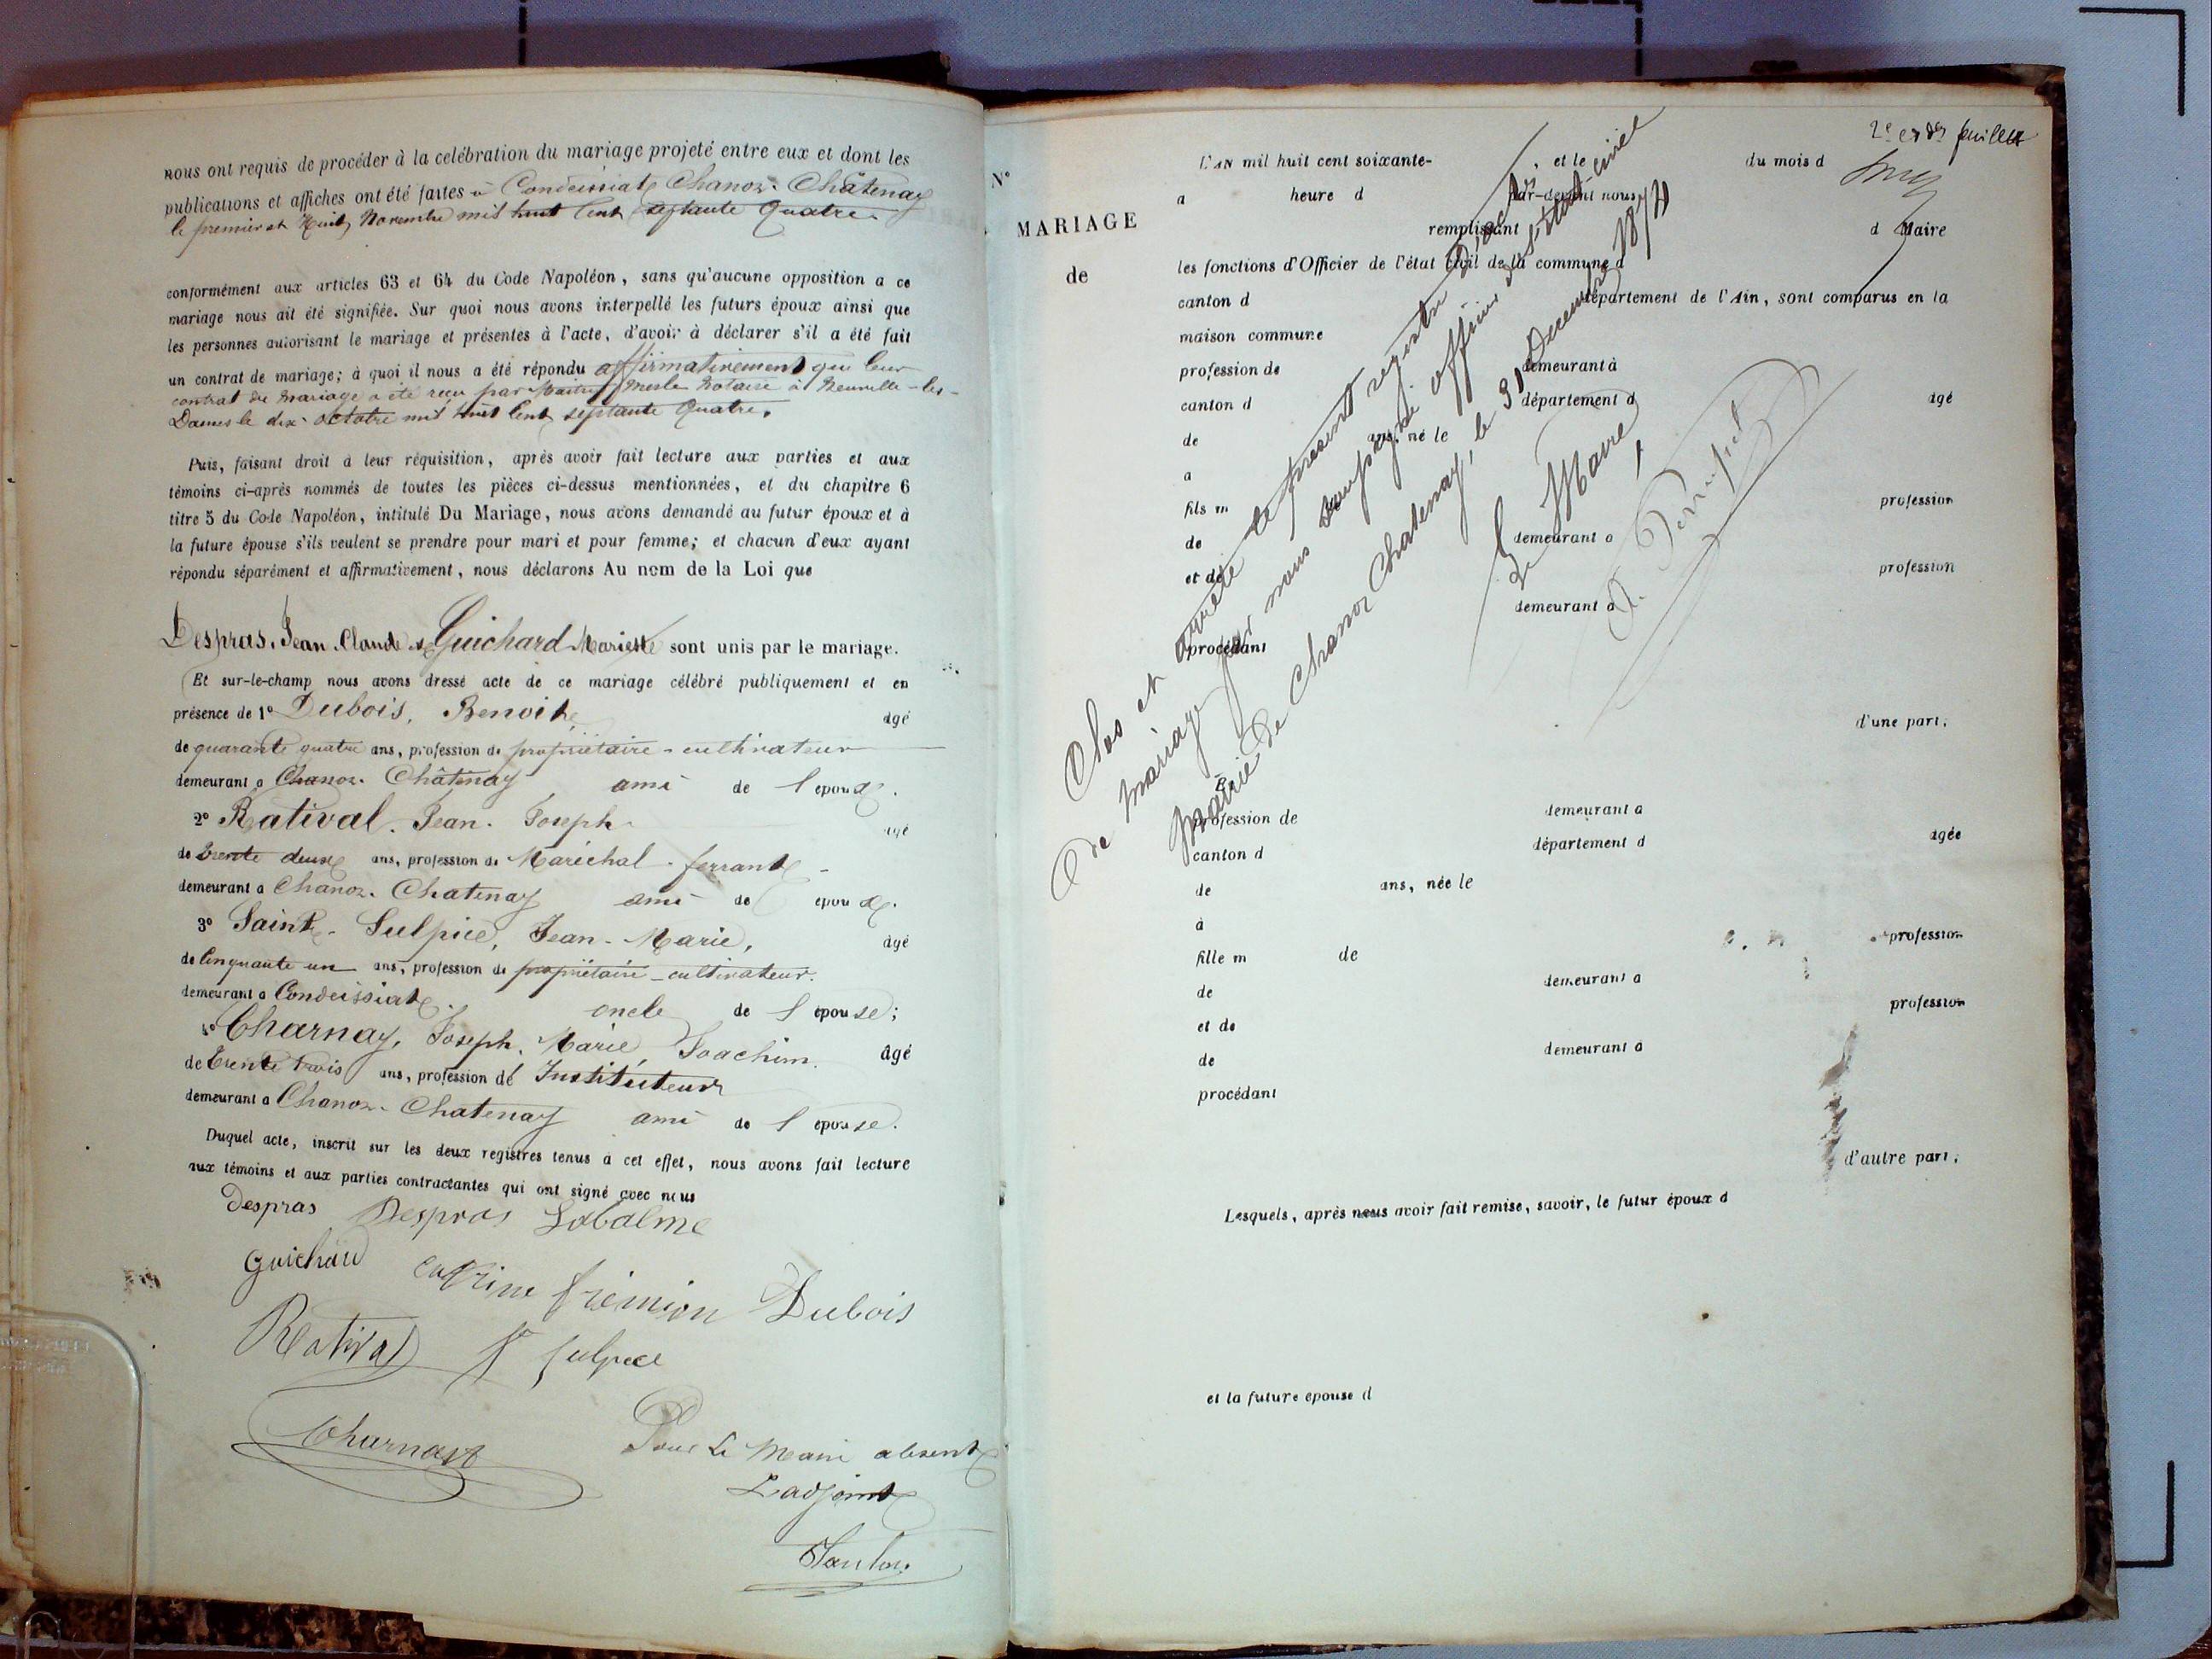 nous ont requis de procéder à la celébration du mariage projeté entre eux et dont les
publications et affiches ont été faites à Condeissiat, Chanoz-Châtenay
le premier et Huit, Novembre mil huit cent septante Quatre.
conformément aux articles 63 et 64 du Code Napoléon, sans qu'aucune opposition a ce
mariage nous ait été signifiée. Sur quoi nous avons interpellé les futurs époux ainsi que
les personnes autorisant le mariage et présentes à l'acte, d'avoir à déclarer s'il a été fait
un contrat de mariage; à quoi il nous a été répondu affirmativement que leur
contrat de mariage a été reçu par Maître Merle Notaire à Neuville-les-
Dames le dix octobre mil huit cent septante Quatre.
Puis, faisant droit à leur réquisition, après avoir fait lecture aux parties et aux
témoins ci-après nommés de toutes les pièces ci-dessus mentionnées, et du chapitre 6
titre 5 du Code Napoléon, intitulé Du Mariage, nous avons demandé au futur époux et à
la future épouse s'ils veulent se prendre pour mari et pour femme; et chacun d'eux ayant
répondu séparément et affirmativement, nous déclarons Au nom de la Loi que
Despras, Jean Claude et Guichard Mariette sont unis par le mariage.
Et sur-le-champ nous avons dressé acte de ce mariage célébré publiquement et en
présence de 1° Dubois, Benoit, agé
de quarante quatre ans, profession de propriétaire-cultivateur
demeurant à Chanoz-Châtenay ami de l'epoux.
2° Ratival, Jean-Joseph agé
de trente deux ans, profession de Maréchal-ferrant
demeurant a Chanoz-Chatenay ami de epoux.
3° Saint-Sulpice, Jean-Marie, âgé
de Cinquante un ans, profession de propriétaire-cultivateur.
demeurant a Condeissiat. oncle de l épouse;
4° Charnay, Joseph, Marie, Joachim. âgé
de trente trois ans, profession de Instituteur
demeurant a Chanoz-Chatenay ami de l epouse.
Duquel acte, inscrit sur les deux registres tenus à cet effet, nous avons fait lecture
aux témoins et aux parties contractantes qui ont signé avec nous
Despras Despras Labalme
Guichard frémion Dubois
Ratival St Sulpice
Charnay
Pour Le Maire absent
L'adjoint
2e et der feuillet
N°
MARIAGE
de
L'AN mil huit cent soixante- , et le du mois d
a heure d par-devant nous
remplissant d Maire
les fonctions d'Officier de l'état civil de la commune d
canton d département de l'Ain, sont comparus en la
maison commune
profession de demeurant à
canton d département d agé
de ans, né le
a
fils m profession
de demeurant a
et de profession
demeurant a
procédant
d'une part;
Et
profession de demeurant a
canton d département d agée
de ans, née le
à
fille m de profession
de demeurant a
et de profession
de demeurant a
procédant
d'autre part;
Lesquels, après nous avoir fait remise, savoir, le futur époux d
et la future epouse d
Clos et arrêté le présent registre d'actes
de mariage par nous soussigné officier de l'état civil
Mairie de Chanoz Chatenay, le 31 Decembre 1874
Le Maire,